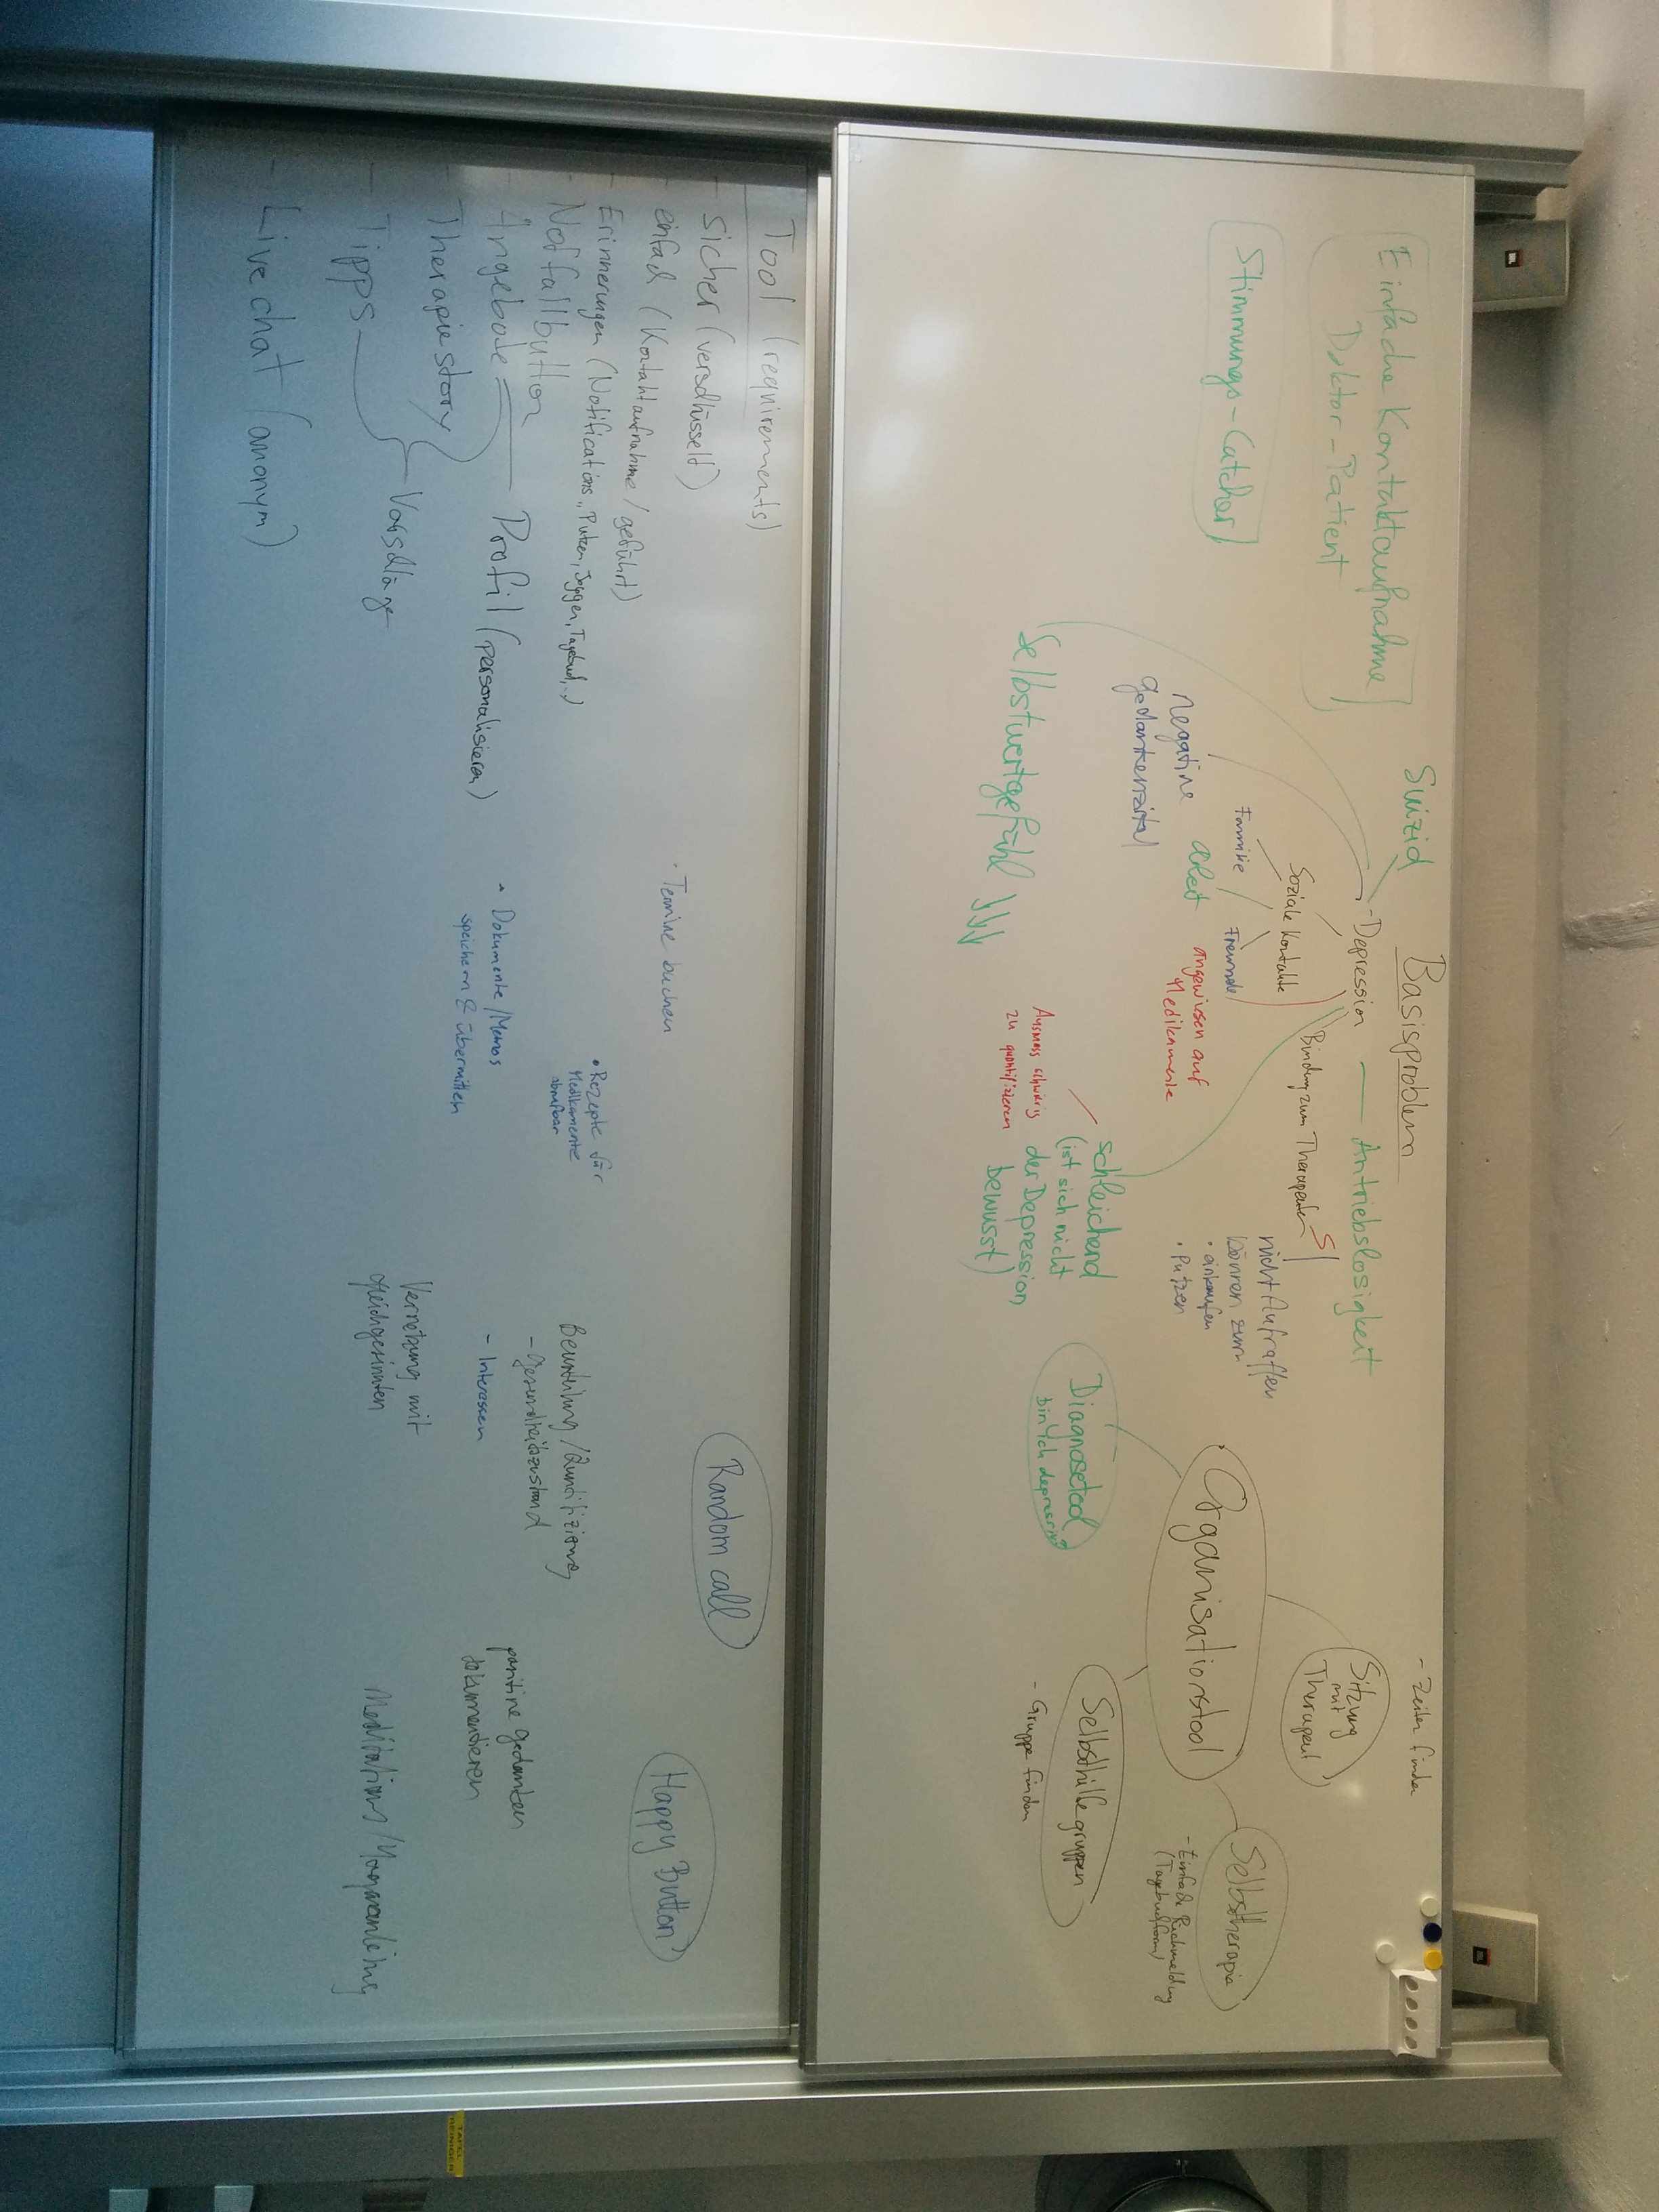 Einfache Kontaktaufnahme
Doktor-Patient
Stimmungs-Catcher
Suizid
Basisproblem
-Depression
Antriebslosigkeit
Soziale Kontakte
Bindung zum Therapeuten
Familie
Freunde
negative
Gedankenzirkel
angewiesen auf
Medikamente
nicht Aufraffen
können zum
• einkaufen
• Putzen
Selbstwertgefühl ↓↓↓
schleichend
(ist sich nicht
der Depression
bewusst)
Ausmass schwierig
zu quantifizieren
- Zeiten finden
Sitzung
mit
Therapeut
Organisationstool
Selbsttherapie
- Einfache Rückmeldung
(Tagebuchform)
Diagnosetool
bin ich depressiv?
Selbsthilfegruppen
- Gruppe finden
Tool (requirements)
- sicher (verschlüsselt)
- einfach (Kontaktaufnahme / geführt)
- Erinnerungen (Notifications., Putzen, Joggen, Tagebuch,..)
- Notfallbutton
- Angebote
Profil (personalisieren)
- Therapiestory
Vorschläge
- Tipps
- Live chat (anonym)
• Termine buchen
• Rezepte für
Medikamente
abrufbar
• Dokumente / Memos
speichern & übermitteln
Random call
Happy Button
Beurteilung / Quantifizierung
- Gesundheitszustand
- Interessen
positive Gedanken
dokumentieren
Vernetzung mit
gleichgesinnten
Meditations / Yogaanleitung
TAFEL
REINIGER
JBL
JBL